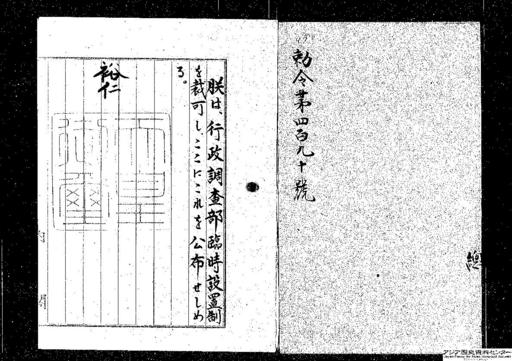 勅令第四百九十號
朕は、行政調査部臨時設置制
を裁可し、ここにこれを公布せしめ
る。
裕仁
天皇御璽
アジア歴史資料センター